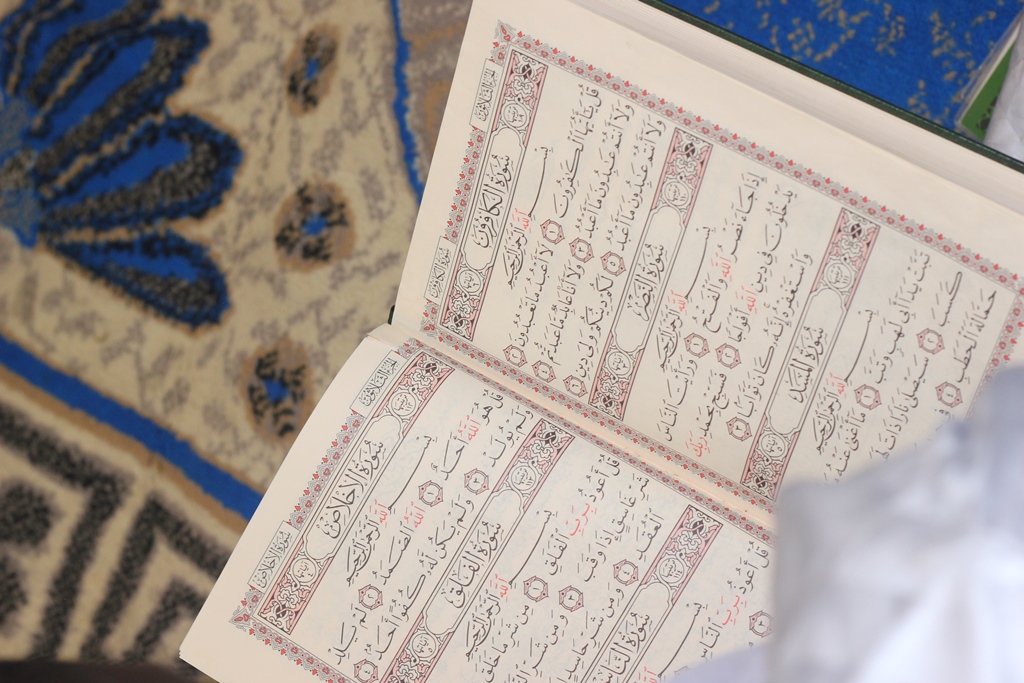 سُورَةُ الْكَافِرُونَ
بِسْمِ اللَّهِ الرَّحْمَٰنِ الرَّحِيمِ
قُلْ يَٰٓأَيُّهَا الْكَٰفِرُونَ ١ لَآ أَعْبُدُ مَا تَعْبُدُونَ ٢
وَلَآ أَنتُمْ عَٰبِدُونَ مَآ أَعْبُدُ ٣ وَلَآ أَنَا۠ عَابِدٌ مَّا عَبَدتُّمْ ٤
وَلَآ أَنتُمْ عَٰبِدُونَ مَآ أَعْبُدُ ٥ لَكُمْ دِينُكُمْ وَلِيَ دِينِ ٦
سُورَةُ النَّصْرِ
بِسْمِ اللَّهِ الرَّحْمَٰنِ الرَّحِيمِ
إِذَا جَآءَ نَصْرُ اللَّهِ وَالْفَتْحُ ١ وَرَأَيْتَ النَّاسَ
يَدْخُلُونَ فِي دِينِ اللَّهِ أَفْوَاجًا ٢ فَسَبِّحْ بِحَمْدِ رَبِّكَ
وَاسْتَغْفِرْهُ إِنَّهُۥ كَانَ تَوَّابًا ٣
سُورَةُ الْمَسَدِ
بِسْمِ اللَّهِ الرَّحْمَٰنِ الرَّحِيمِ
تَبَّتْ يَدَآ أَبِي لَهَبٍ وَتَبَّ ١ مَآ أَغْنَىٰ عَنْهُ
كَسَبَ ٢ سَيَصْلَىٰ نَارًا ذَاتَ
حَمَّالَةَ الْحَطَبِ ٤
سُورَةُ الْإِخْلَاصِ
سُورَةُ الْإِخْلَاصِ
بِسْمِ اللَّهِ الرَّحْمَٰنِ الرَّحِيمِ
قُلْ هُوَ اللَّهُ أَحَدٌ ١ اللَّهُ الصَّمَدُ ٢ لَمْ يَلِدْ
وَلَمْ يُولَدْ ٣ وَلَمْ يَكُن لَّهُۥ كُفُوًا أَحَدٌۢ ٤
سُورَةُ الْفَلَقِ
بِسْمِ اللَّهِ الرَّحْمَٰنِ الرَّحِيمِ
قُلْ أَعُوذُ بِرَبِّ الْفَلَقِ ١ مِن شَرِّ مَا خَلَقَ
شَرِّ غَاسِقٍ إِذَا وَقَبَ ٣ وَمِن شَرِّ
الْعُقَدِ ٤ وَمِن شَرِّ حَاسِدٍ
سُورَةُ النَّاسِ
بِسْمِ اللَّهِ
قُلْ أَعُوذُ بِرَبِّ النَّاسِ